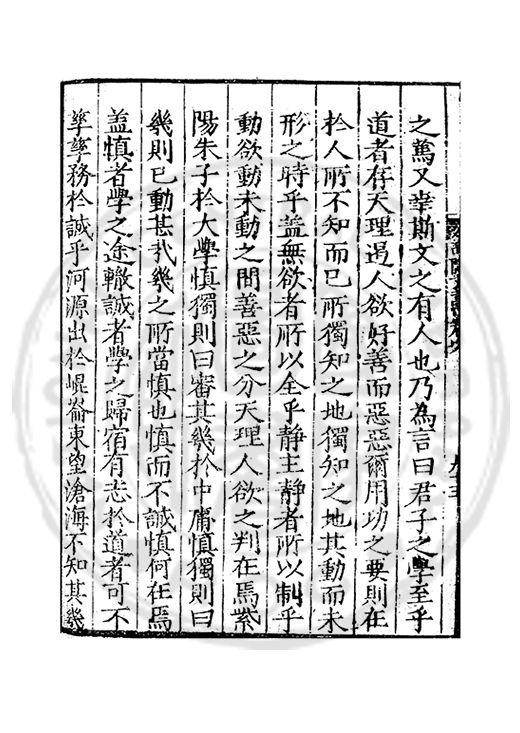 之篤又幸斯文之有人也乃為言曰君子之學至乎
道者存天理遏人欲好善而惡惡爾用功之要則在
於人所不知而已所獨知之地獨知之地其動而未
形之時乎蓋無欲者所以全乎靜主靜者所以制乎
動欲動未動之間善惡之分天理人欲之判在焉紫
陽朱子於大學慎獨則曰審其幾於中庸慎獨則曰
幾則已動甚哉幾之所當慎也慎而不誠慎何在焉
盖慎者學之途轍誠者學之歸宿有志於道者可不
孳孳務於誠乎河源出於崐崙東望滄海不知其幾